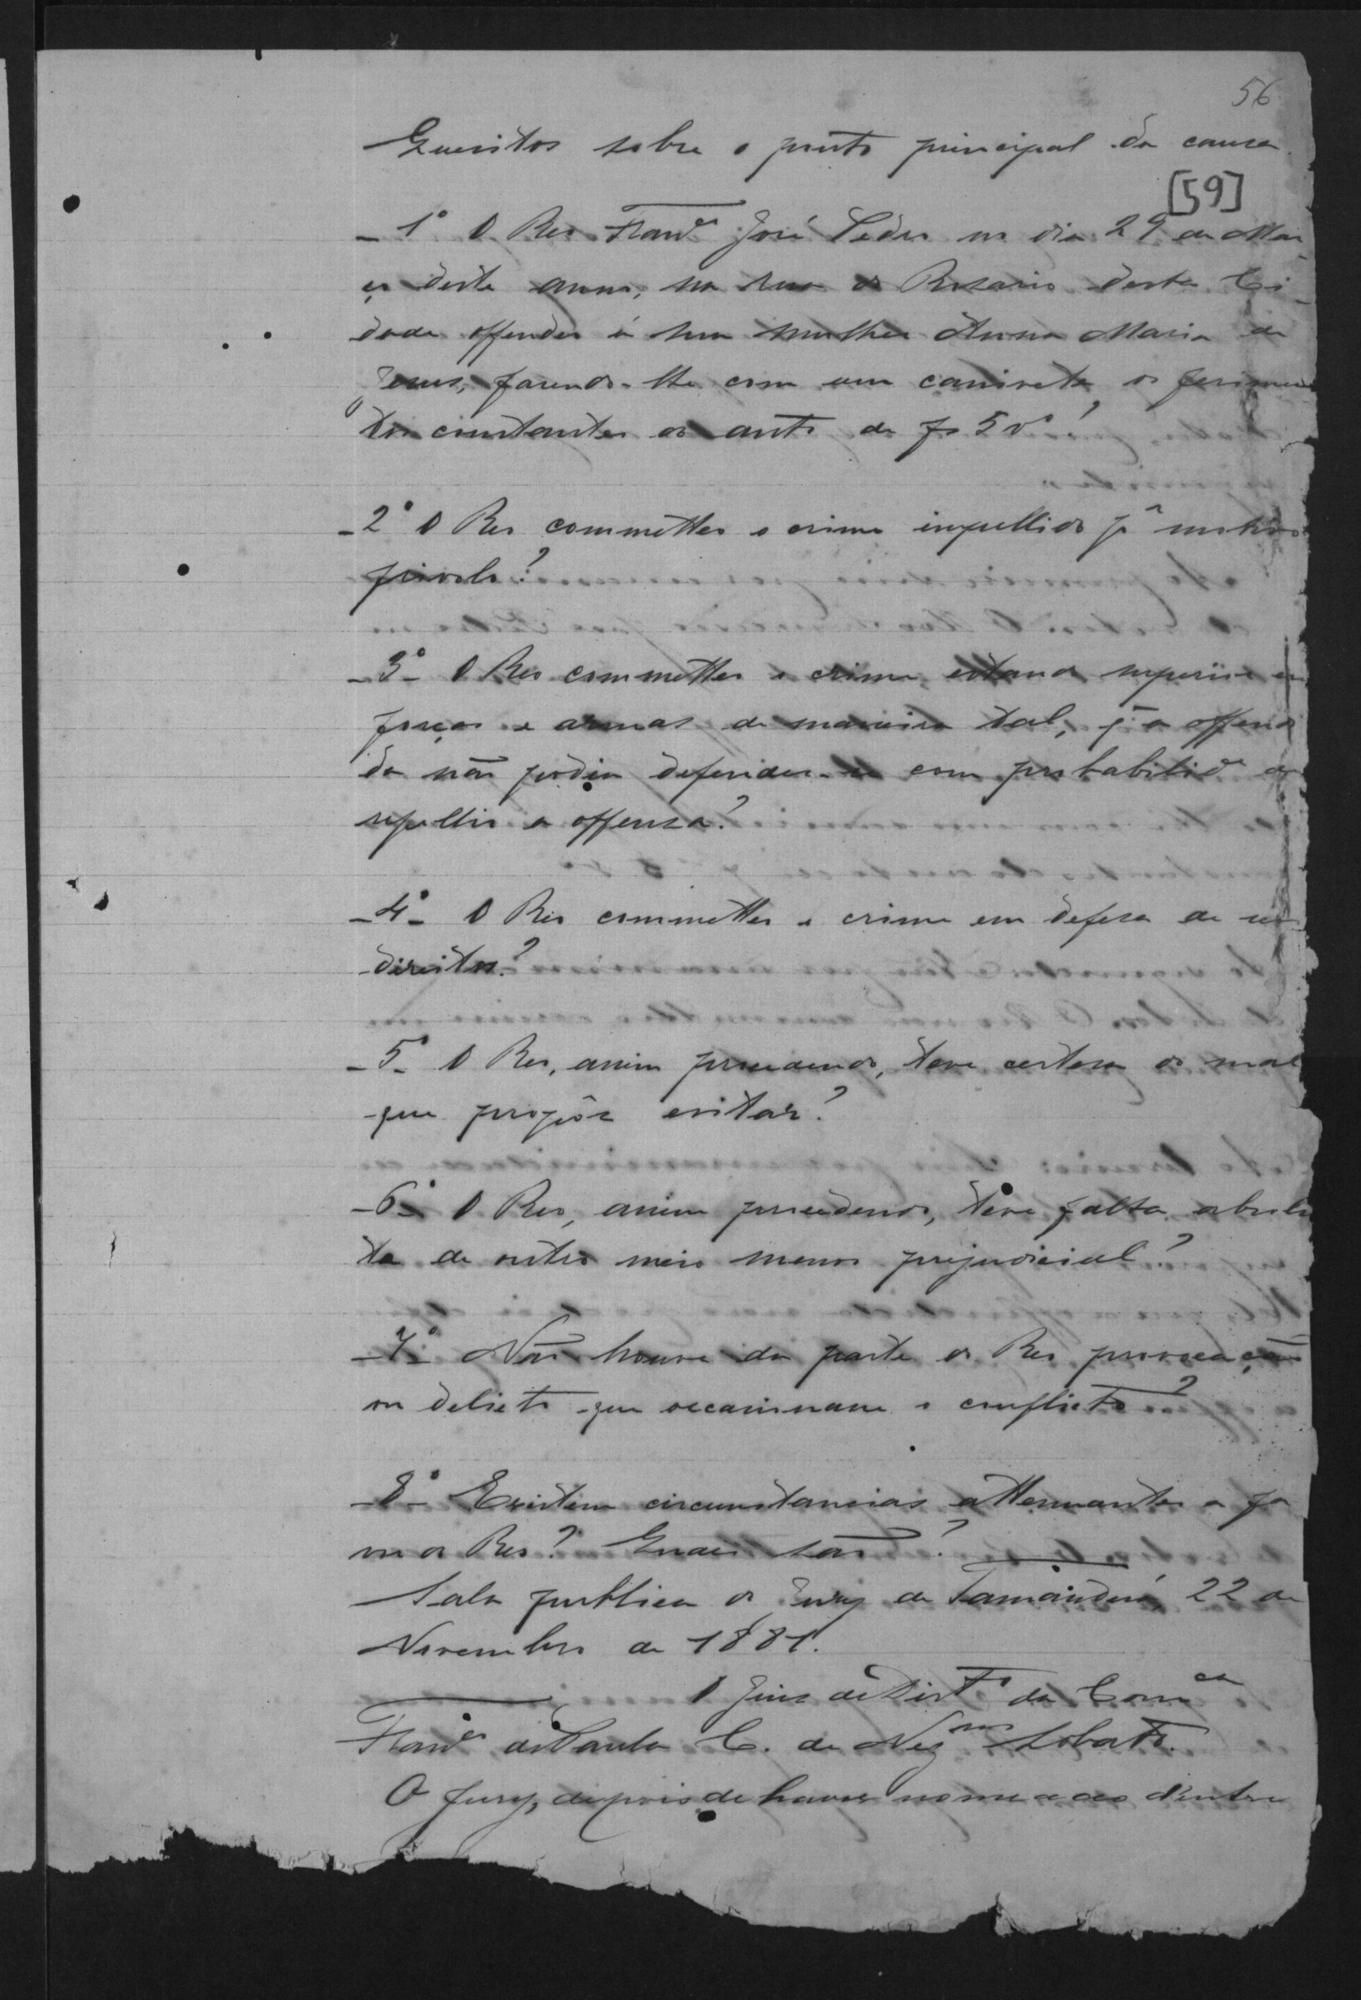 56
Quesitos sobre o ponto principal da causa
[59]
1º O Reo Franco José Pedro no dia 29 de Mar
ço deste anno, na rua do Rosario desta Ci-
dade offendeo á sua mulher Anna Maria de
Jesus, fazendo-lhe com um canivete os ferimen
tos constantes do auto de fs 5 vº?
2º O Reo commetteo o crime impellido pr motivo
frivolo?
3º O Reo commetteo o crime, estando superior em
forças e armas de maneira tal, q a offendi
da não podia defender-se com probabilide de
repellir a offensa?
4º O Reo commetteo o crime em defesa de seos
direitos?
5º O Reo, assim procedendo, teve certeza do mal
que propôz evitar?
6º O Reo, assim procedendo, teve falta absolu
ta de outro meio menos prejudicial?
7º Não houve da parte do Reo provocação
ou delicto que occasionasse o conflicto?
8º Existem circumstancias attenuantes a fa
vor do Reo? Quaes são?
Sala publica do Jury de Tamanduá, 22 de
Novembro de 1881.
O Juiz de Dirto da Comca
Franco de Paula C. de Negros Lobato.
O Jury, depois de haver nomeado dentre